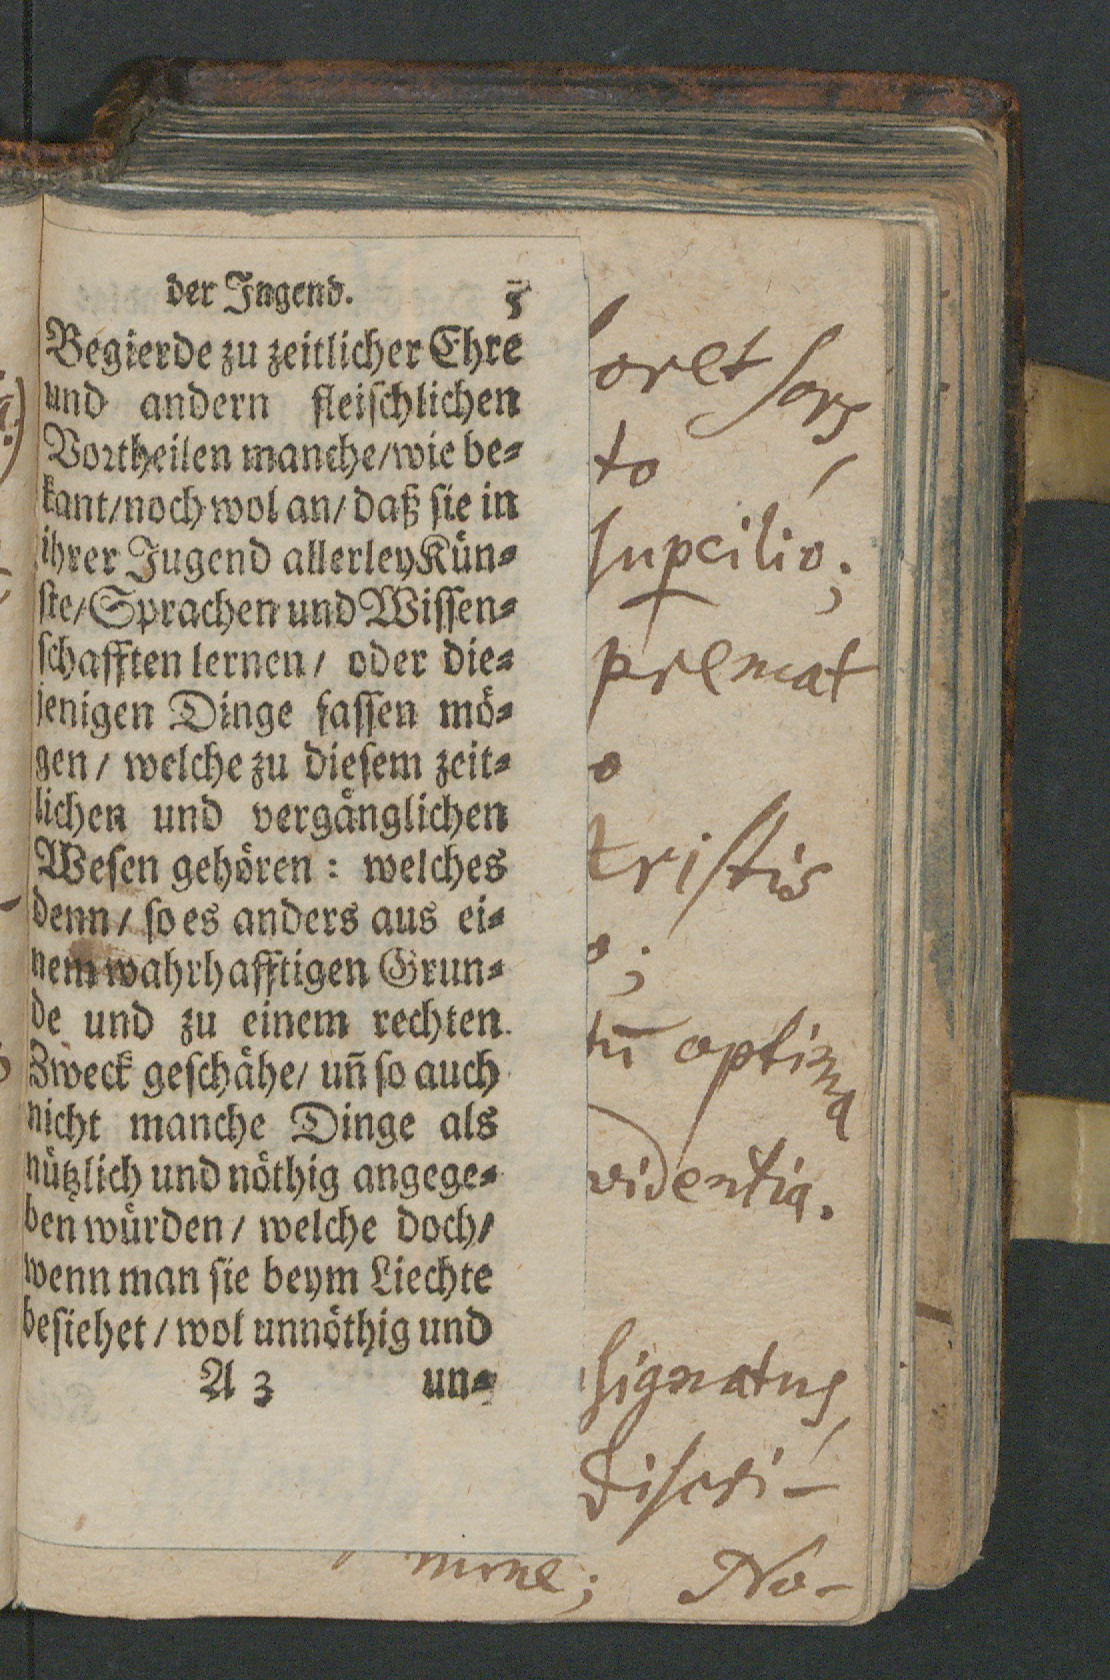 der Jugend. 5
Begierde zu zeitlicher Ehre
und andern fleischlichen
Vortheilen manche/wie be-
kant/noch wol an/ daß sie in
ihrer Jugend allerley Kün-
ste/Sprachen und Wissen-
schafften lernen/ oder die-
jenigen Dinge fassen mö-
gen/ welche zu diesem zeit-
lichen und vergänglichen
Wesen gehören: welches
denn/ so es anders aus ei-
nem wahrhafftigen Grun-
de und zu einem rechten
Zweck geschähe/ uñ so auch
nicht manche Dinge als
nützlich und nöthig angege-
ben würden/ welche doch/
wenn man sie beym Liechte
besiehet/ wol unnöthig und
A 3 un-
sors
to
supcilio;
premat
o
tristis
o;
optima
videntia.
signatus
discri-
mine; No-